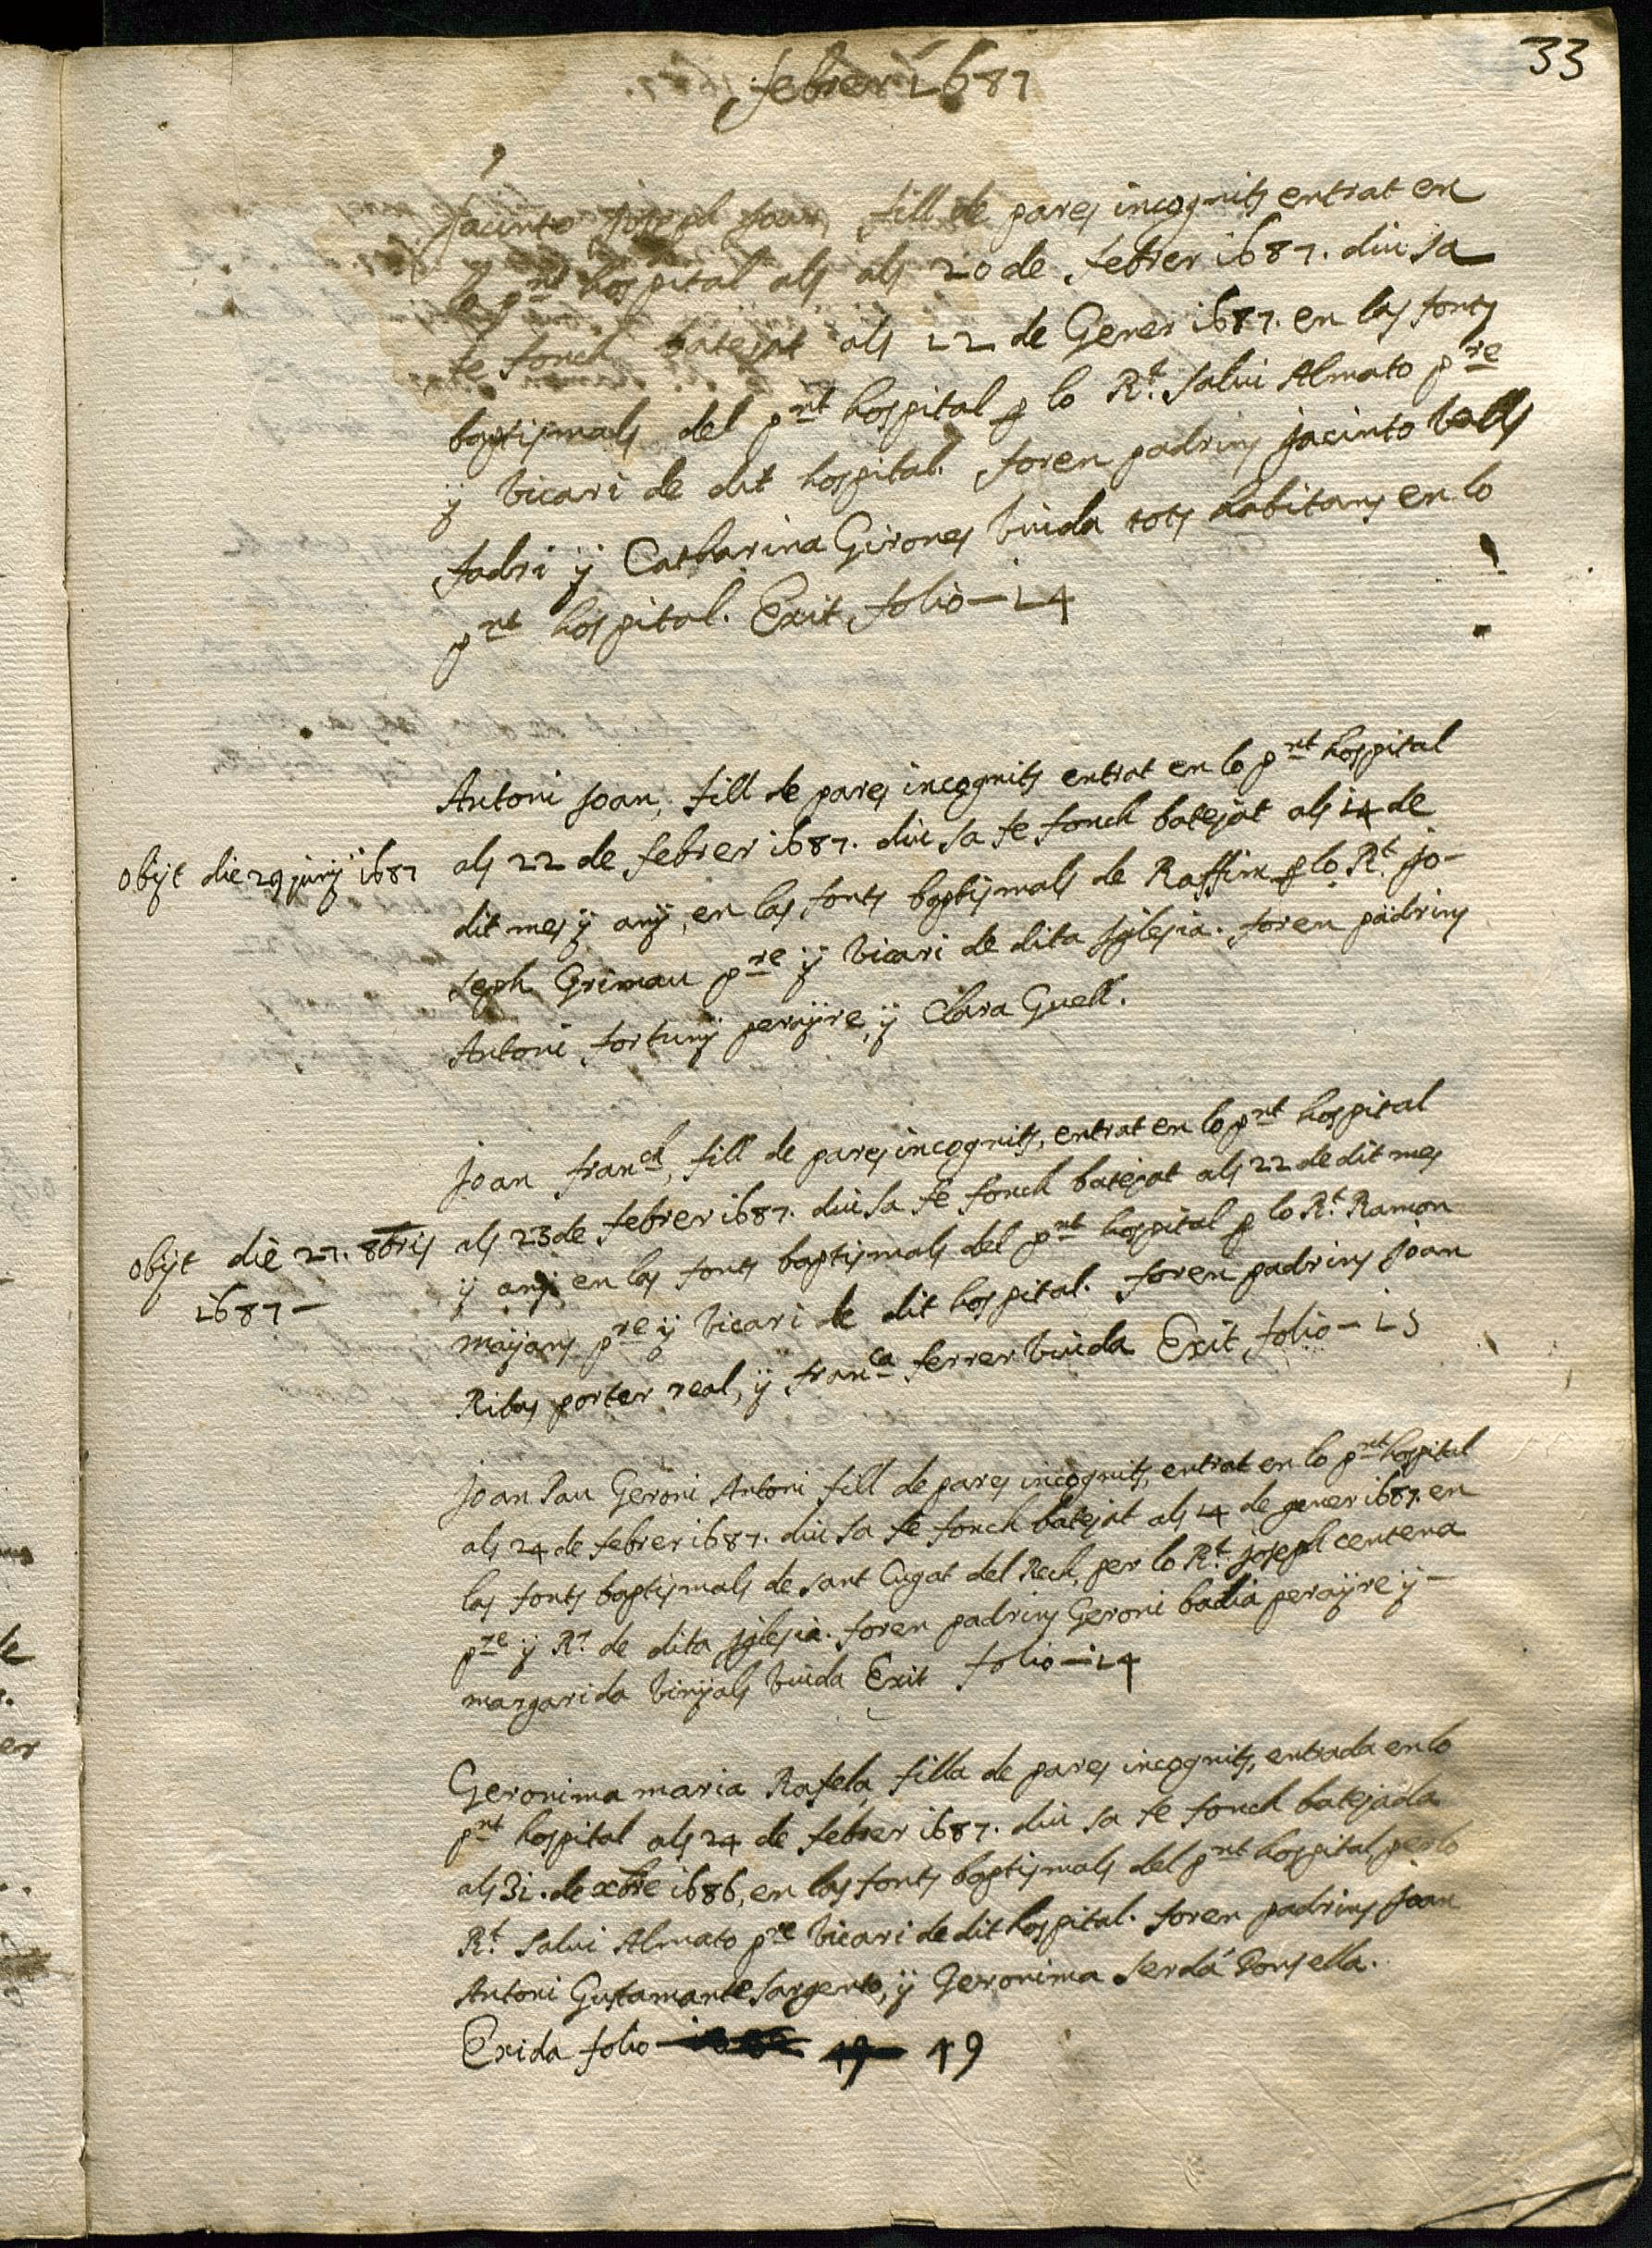 33
febrer 1687
Jacinto Joseph Joan, fill de pares incognits entrat en
lo pnt hospital als als 20 de febrer 1687. diu sa
fe fonch batejat als 22 de Gener 1687. en las fonts
baptismals del pnt hospital p lo Rt. Salui Almato pre
ÿ Vicari de dit hospital. foren padrins Jacinto Valls
fadri ÿ Catharina Girones Viuda tots habitans en lo
pnt hospital. Exit folio — 14
Antoni Joan, fill de pares incognits entrat en lo pnt hospital
als 22 de febrer 1687. diu sa fe fonch batejat als 14 de
dit mes ÿ anÿ, en las fonts baptismals de Raffim p lo Rt. Jo-
seph Grimau pre ÿ Vicari de dita Iglesia. foren padrins
Antoni fortunÿ peraÿre, ÿ Clara Guell.
obijt die 29 junÿ 1687
Joan franch, fill de pares incognits, entrat en lo pnt hospital
als 23 de febrer 1687. diu sa fe fonch batejat als 22 de dit mes
ÿ anÿ, en las fonts baptismals del pnt hospital p lo Rt. Ramon
maÿans pre ÿ Vicari de dit hospital. foren padrins Joan
Ribas porter real, ÿ franca ferrer Viuda Exit folio — 15
obijt die 27. 8bris
1687 —
Joan Pau Geroni Antoni fill de pares incognits, entrat en lo pnt hospital
als 24 de febrer 1687. diu sa fe fonch batejat als 4 de gener 1687. en
las fonts baptismals de sant Cugat del Rech, per lo Rt. Joseph centena
pre ÿ Rr de dita Iglesia. foren padrins Geroni badia peraÿre ÿ —
margarida Vinÿals Viuda Exit folio — 14
Geronima maria Rafela, filla de pares incognits, entrada en lo
pnt hospital als 24 de febrer 1687. diu sa fe fonch batejada
als 31. de xbre 1686, en las fonts baptismals del pnt hospital, per lo
Rt. Salui Almato pre Vicari de dit hospital. foren padrins Joan
Antoni Gustamante sargento, ÿ Geronima Serdá Donsella.
Exida folio — 49